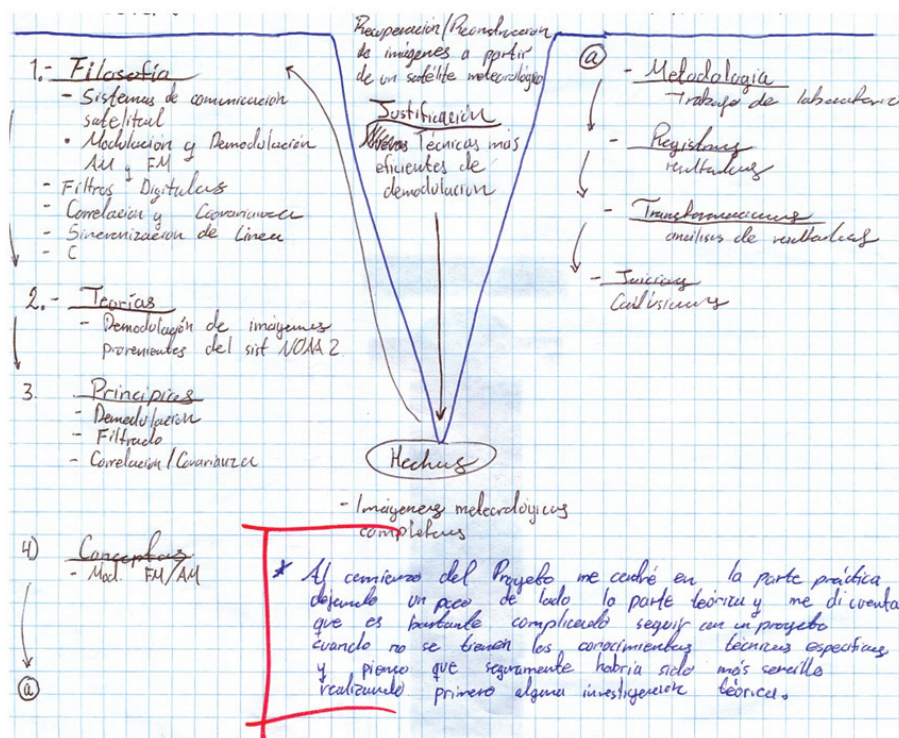 Recuperación/Reconstrucción
de imágenes a partir
de un satélite meteorológico
Justificación
Nuevas Técnicas más
eficientes de
demodulacion
1.- Filosofía
- Sistemas de comunicación
satelital
• Modulación y Demodulación
AM y FM
- Filtros Digitales
- Correlación y Coovarianza
- Sincronización de Linea
- C
2.- Teorías
- Demodulación de imágenes
provenientes del sist NOAA 2.
3. Principios
- Demodulacion
- Filtrado
- Correlación/Covarianza
4) Conceptos
- Mod. FM/AM
a
Hechos
- Imágenes meteorológicas
completas
a
- Metodologia
Trabajo de laboratorio
- Registros
resultados
- Transformaciones
análisis de resultados
- Juicios
* Al comienzo del Proyeto me centré en la parte práctica
dejando un poco de lado la parte teórica y me di cuenta
que es bastante complicado seguir con un proyeto
cuando no se tienen los conocimientos técnicos especificos
y pienso que seguramente habría sido más sencillo
realizando primero alguna investigación teórica.